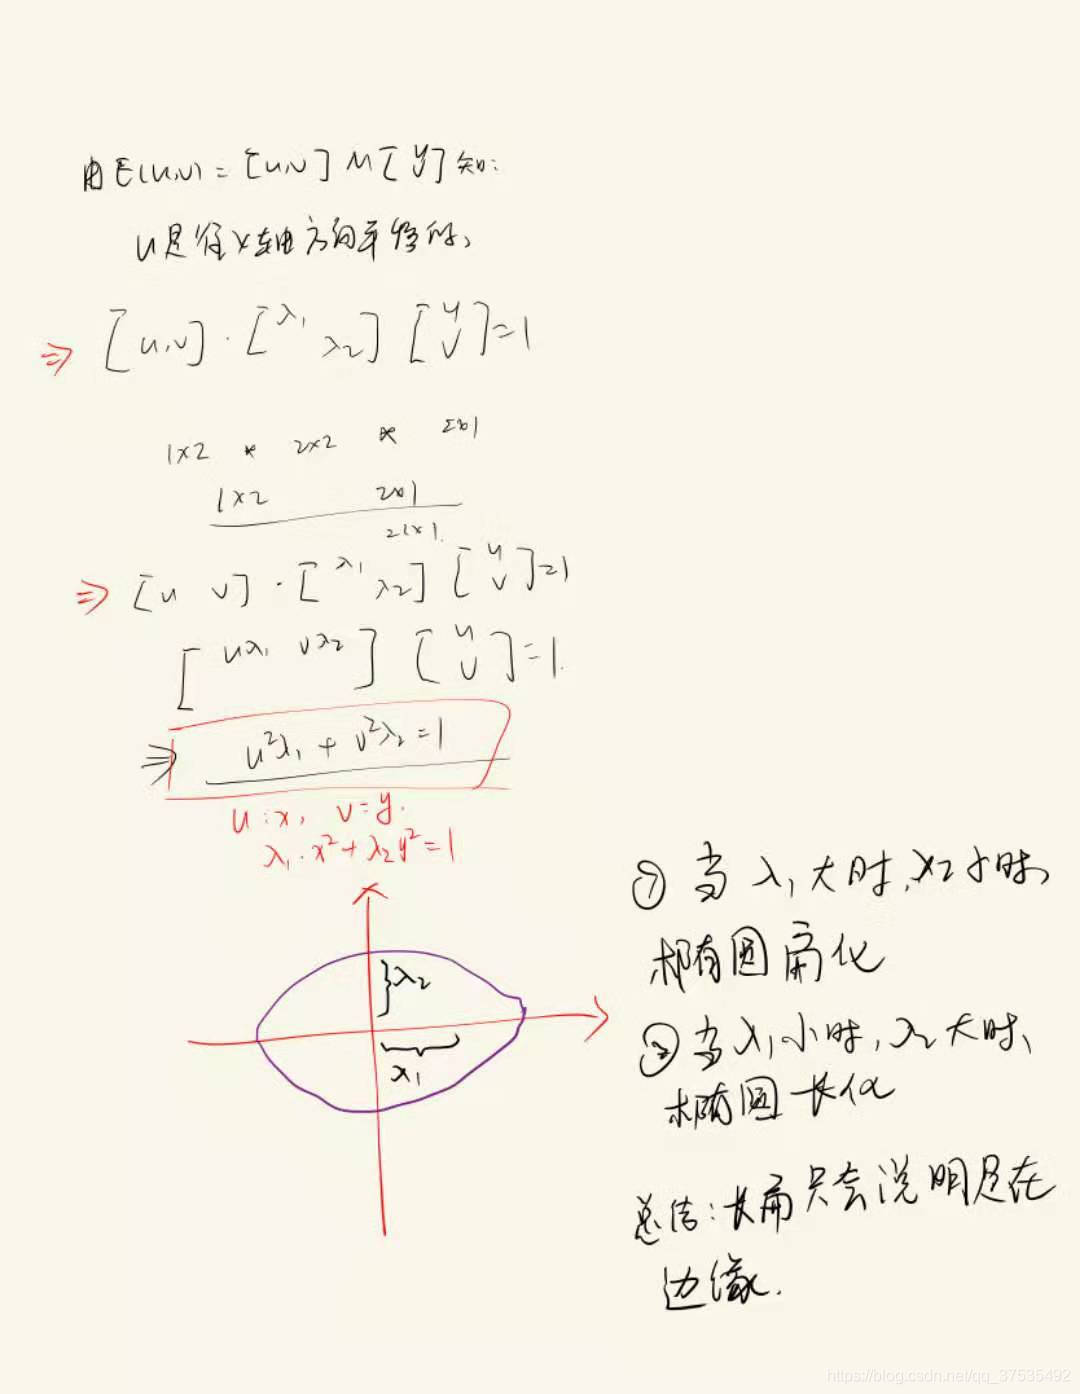 由E(u,v) = [u,v] M [u v] 知:
u是往x轴方向平移的,
⇒ [u,v] · [λ₁ λ₂] [u v] = 1
1×2 * 2×2 * 2×1
1×2 2×1
⇒ [u v] · [λ₁ λ₂] [u v] = 1
[uλ₁ vλ₂] [u v] = 1.
⇒ u²λ₁ + v²λ₂ = 1
u:x, v=y.
λ₁·x²+λ₂y²=1
λ₂
λ₁
① 当λ₁大时,λ₂小时、
椭圆扁化
② 当λ₁小时,λ₂大时、
椭圆长化
总结:长扁只会说明是在
边缘.
https://blog.csdn.net/qq_37535492